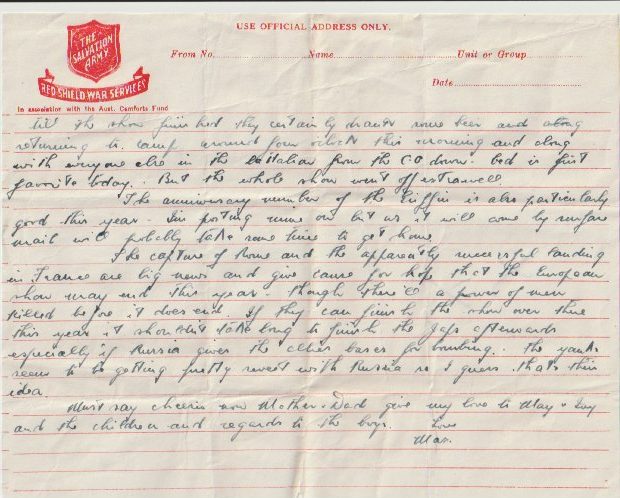 USE OFFICIAL ADDRESS ONLY.
THE
SALVATION
ARMY
RED SHIELD WAR SERVICES
In association with the Aust. Comforts Fund
From No. Name Unit or Group
Date
till the show finished they certainly drank some beer and along
returning to camp around four oclock this morning and along
with everyone else in the battalion from the CO down bed is first
favorite today. But the whole show went off
The anniversary number of the is also particularly
good this year. Im posting mine on but as it will come by surface
mail will probably take some time to get home.
The capture of Rome and the apparently successful landing
in France are big news and give cause for hope that the European
show may end this year. Though there'll a power of men
killed before it does end. If they can finish the show over there
this year it shouldnt take long to finish the Japs afterwards
especially if Russia gives the allies bases for bombing. The yanks
seem to be getting pretty with Russia so I guess thats their
idea.
Must say cheerio now Mother & Dad give my love to May &
and the children and regards to the boys. Love